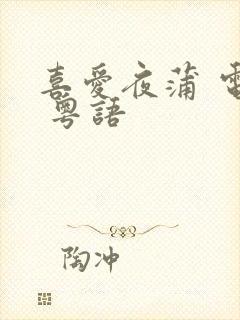 喜愛夜蒲
粵語
陶冲